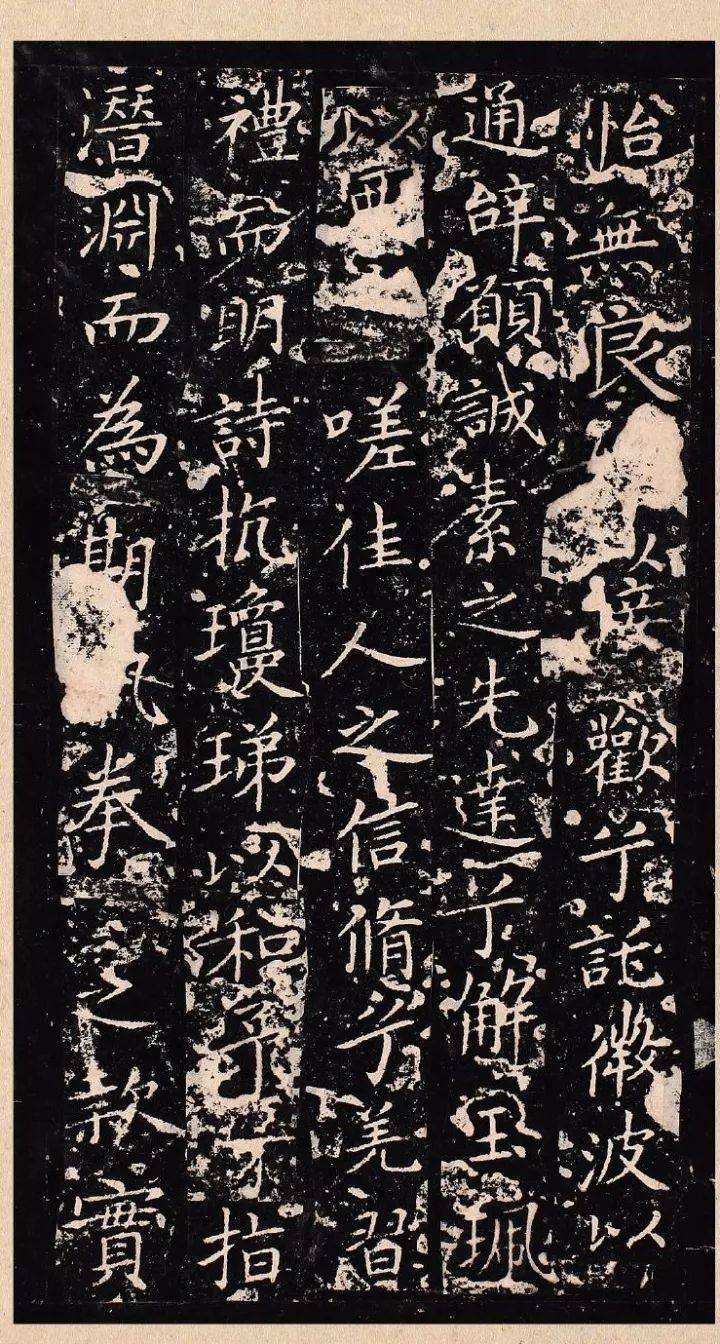 怡無良以接歡兮託微波以
通辞願誠素之先達兮解玉珮
以嗟佳人之信脩兮羌習
禮而明詩抗瓊珶以和予兮指
潛淵而為期拳々之款實